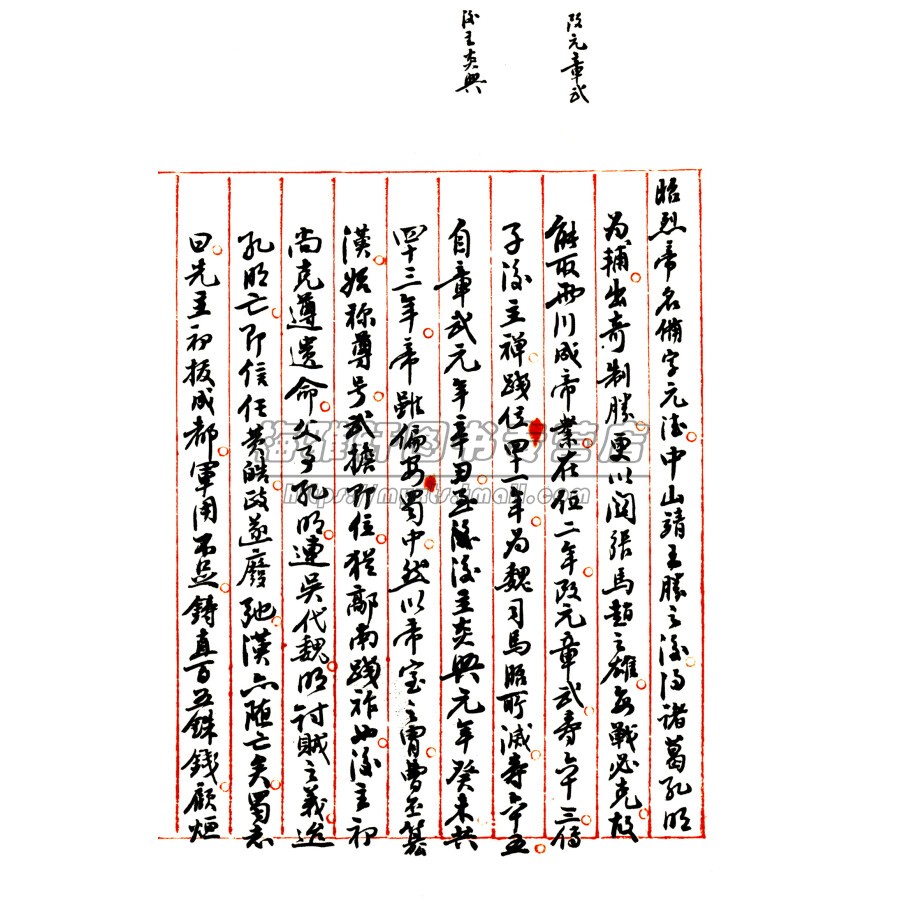 改元章武
後主炎興
昭烈帝名備字元德中山靖王勝之後得諸葛孔明
為輔出奇制勝更以關張馬趙之雄每戰必克故
能取兩川成帝業在位二年改元章武壽六十三傳
子後主禪踐位四十一年為魏司馬昭所滅壽六十五
自章武元年辛丑至後主炎興元年癸未共
四十三年帝雖偏安蜀中然以帝室之胄曹丕篡
漢始称尊号武擔即位猶鄗南踐祚也後主初
尚克遵遺命父事孔明連吳伐魏明討賊之義迨
孔明亡即信任黃皓政遂廢弛漢亦隨亡矣蜀志
曰先主初拔成都軍用不足鑄直百五銖錢顧烜